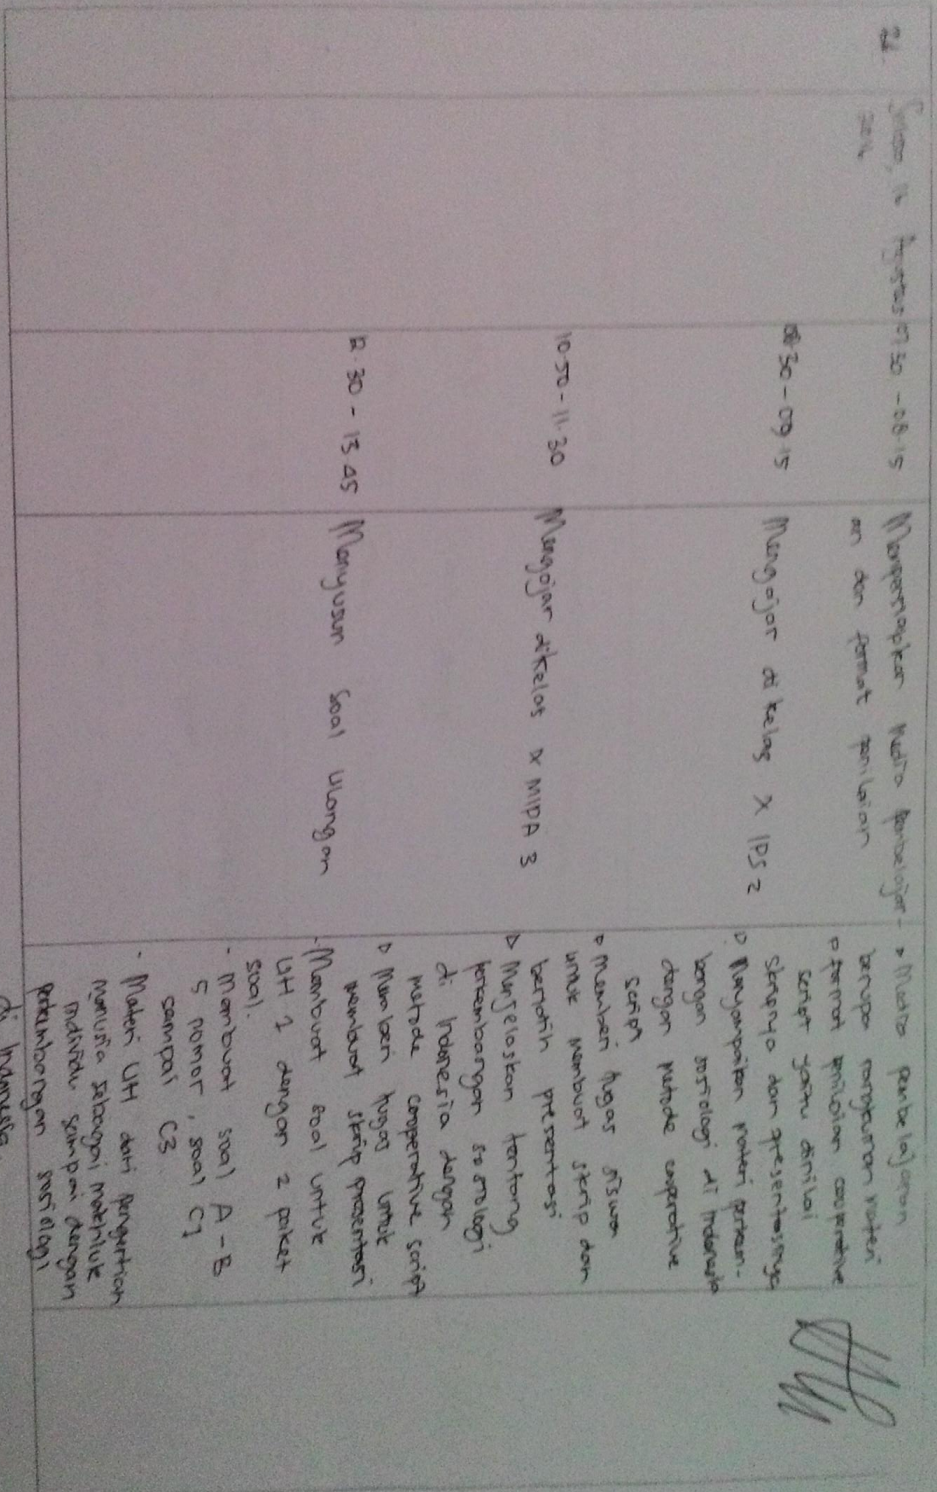 21.
Selasa, 16 Agustus
2016
07.30 - 08.15
Mempersiapkan Media Pembelajar-
an dan format penilaian
▷ Media pembelajaran
berupa rangkuman materi
▷ Format penilaian cooperative
script yaitu dinilai
skripnya dan presentasinya
08.30 - 09.15
Mengajar di kelas X IPS 2
▷ Menyampaikan materi perkem-
bangan sosiologi di Indonesia
dengan metode cooperative
script
▷ memberi tugas siswa
untuk membuat skrip dan
berlatih presentasi
10.50 - 11.30
Mengajar dikelas X MIPA 3
▷ Menjelaskan tentang
perkembangan sosiologi
di Indonesia dengan
metode cooperative script
▷ Memberi tugas untuk
membuat skrip presentasi
12.30 - 13.45
Menyusun Soal Ulangan
- Membuat soal untuk
UH 1 dengan 2 paket
soal.
- Membuat soal A-B
5 nomor, soal C1
sampai C3
- Materi UH dari Pengertian
manusia sebagai makhluk
individu sampai dengan
perkembangan sosiologi
di Indonesia.